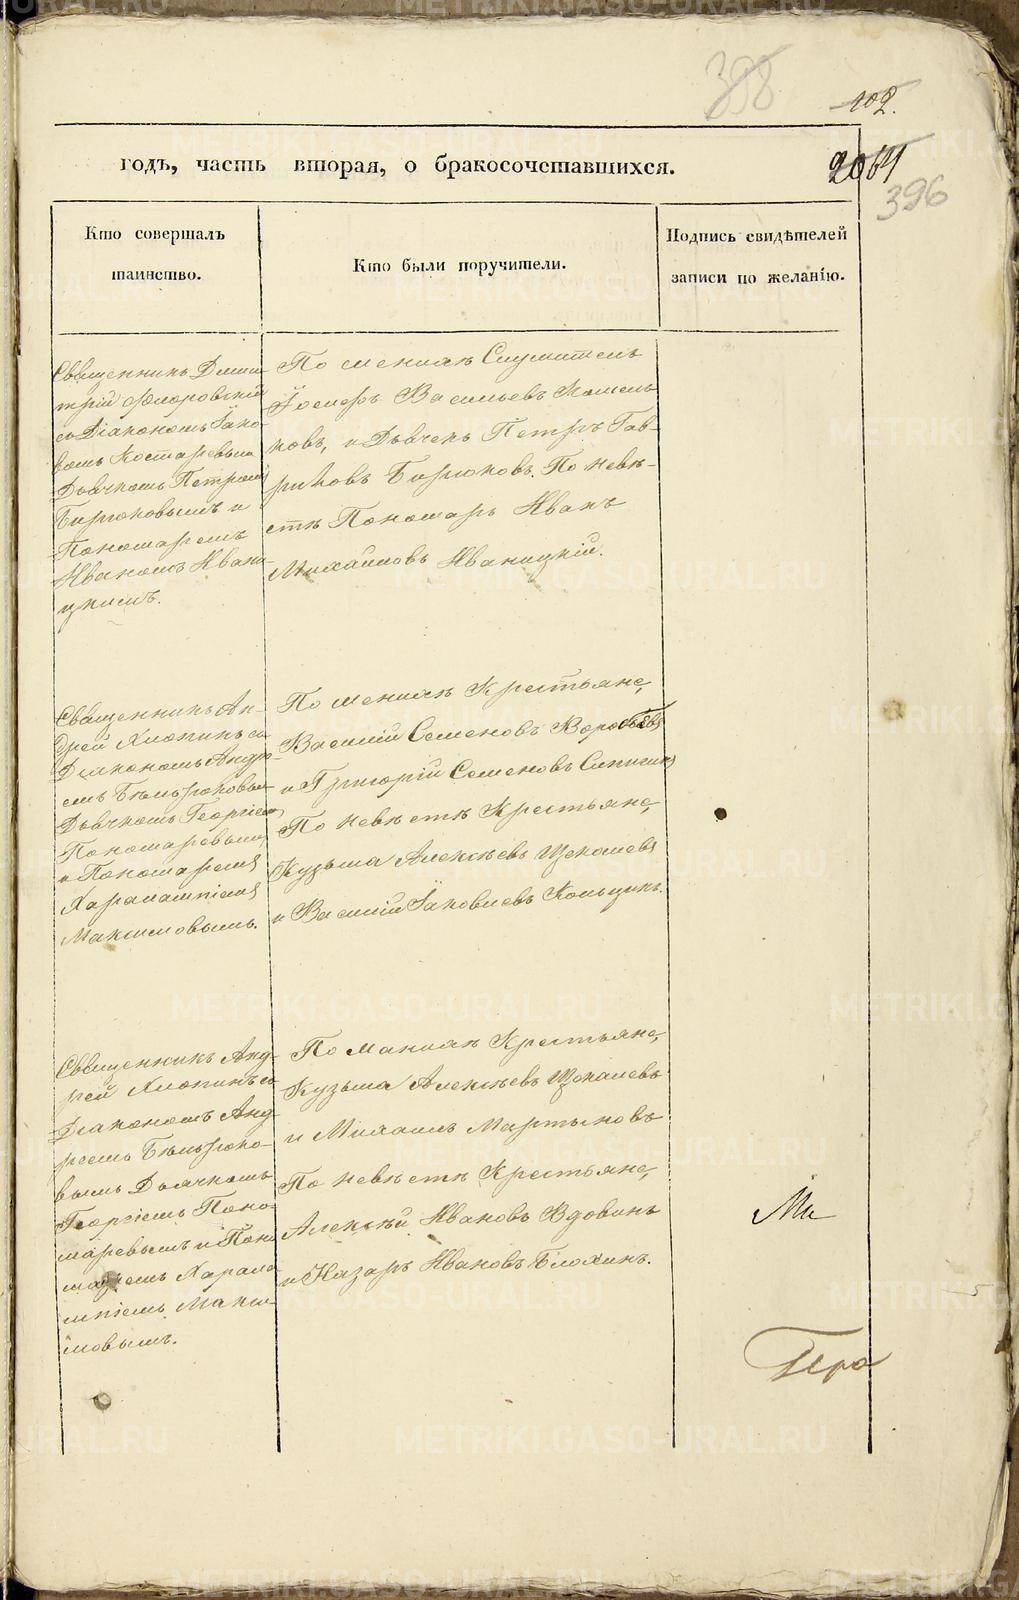 398
102.
годъ, часть вторая, о бракосочетавшихся.
2064
396
Кто совершалъ
таинство.
Кто были поручители.
Подпись свидѣтелей
записи по желанію.
Священникъ Дими-
трій Флоровскій
съ Діакономъ Іако-
вомъ Костаревымъ
Дьячкомъ Петромъ
Бирюковымъ и
Пономаремъ
Иваномъ Ивани-
цкимъ.
По женихѣ Служитель
Іосифъ Васильевъ
ковъ, и Дьячекъ Петръ Гав-
риловъ Бирюковъ. По невѣ-
стѣ Пономарь Иванъ
Михайловъ Иваницкій.
Священникъ Ан-
дрей Хлопинъ съ
Діакономъ Андре-
емъ Бѣльтюковымъ
Дьячкомъ Георгіемъ
Пономаревымъ,
и Пономаремъ
Харалампіемъ
Максимовымъ.
По женихѣ Крестьяне,
Василій Семеновъ Воробьевъ
и Григорій Семеновъ
По невѣстѣ Крестьяне,
Кузьма Алексѣевъ Щекалевъ
и Василій Іаковлевъ Кольцинъ.
Священникъ Анд-
рей Хлопинъ съ
Діакономъ Анд-
реемъ Бѣльтюко-
вымъ Дьячкомъ
Георгіемъ Поно-
маревымъ и Поно-
маремъ Харала-
мпіемъ Макси-
мовымъ.
По женихѣ Крестьяне,
Кузьма Алексѣевъ Щекалевъ
и Михаилъ Мартыновъ
По невѣстѣ Крестьяне,
Алексѣй Ивановъ Вдовинъ
и Назаръ Ивановъ Блохинъ.
METRIKI.GASO-URAL.RU